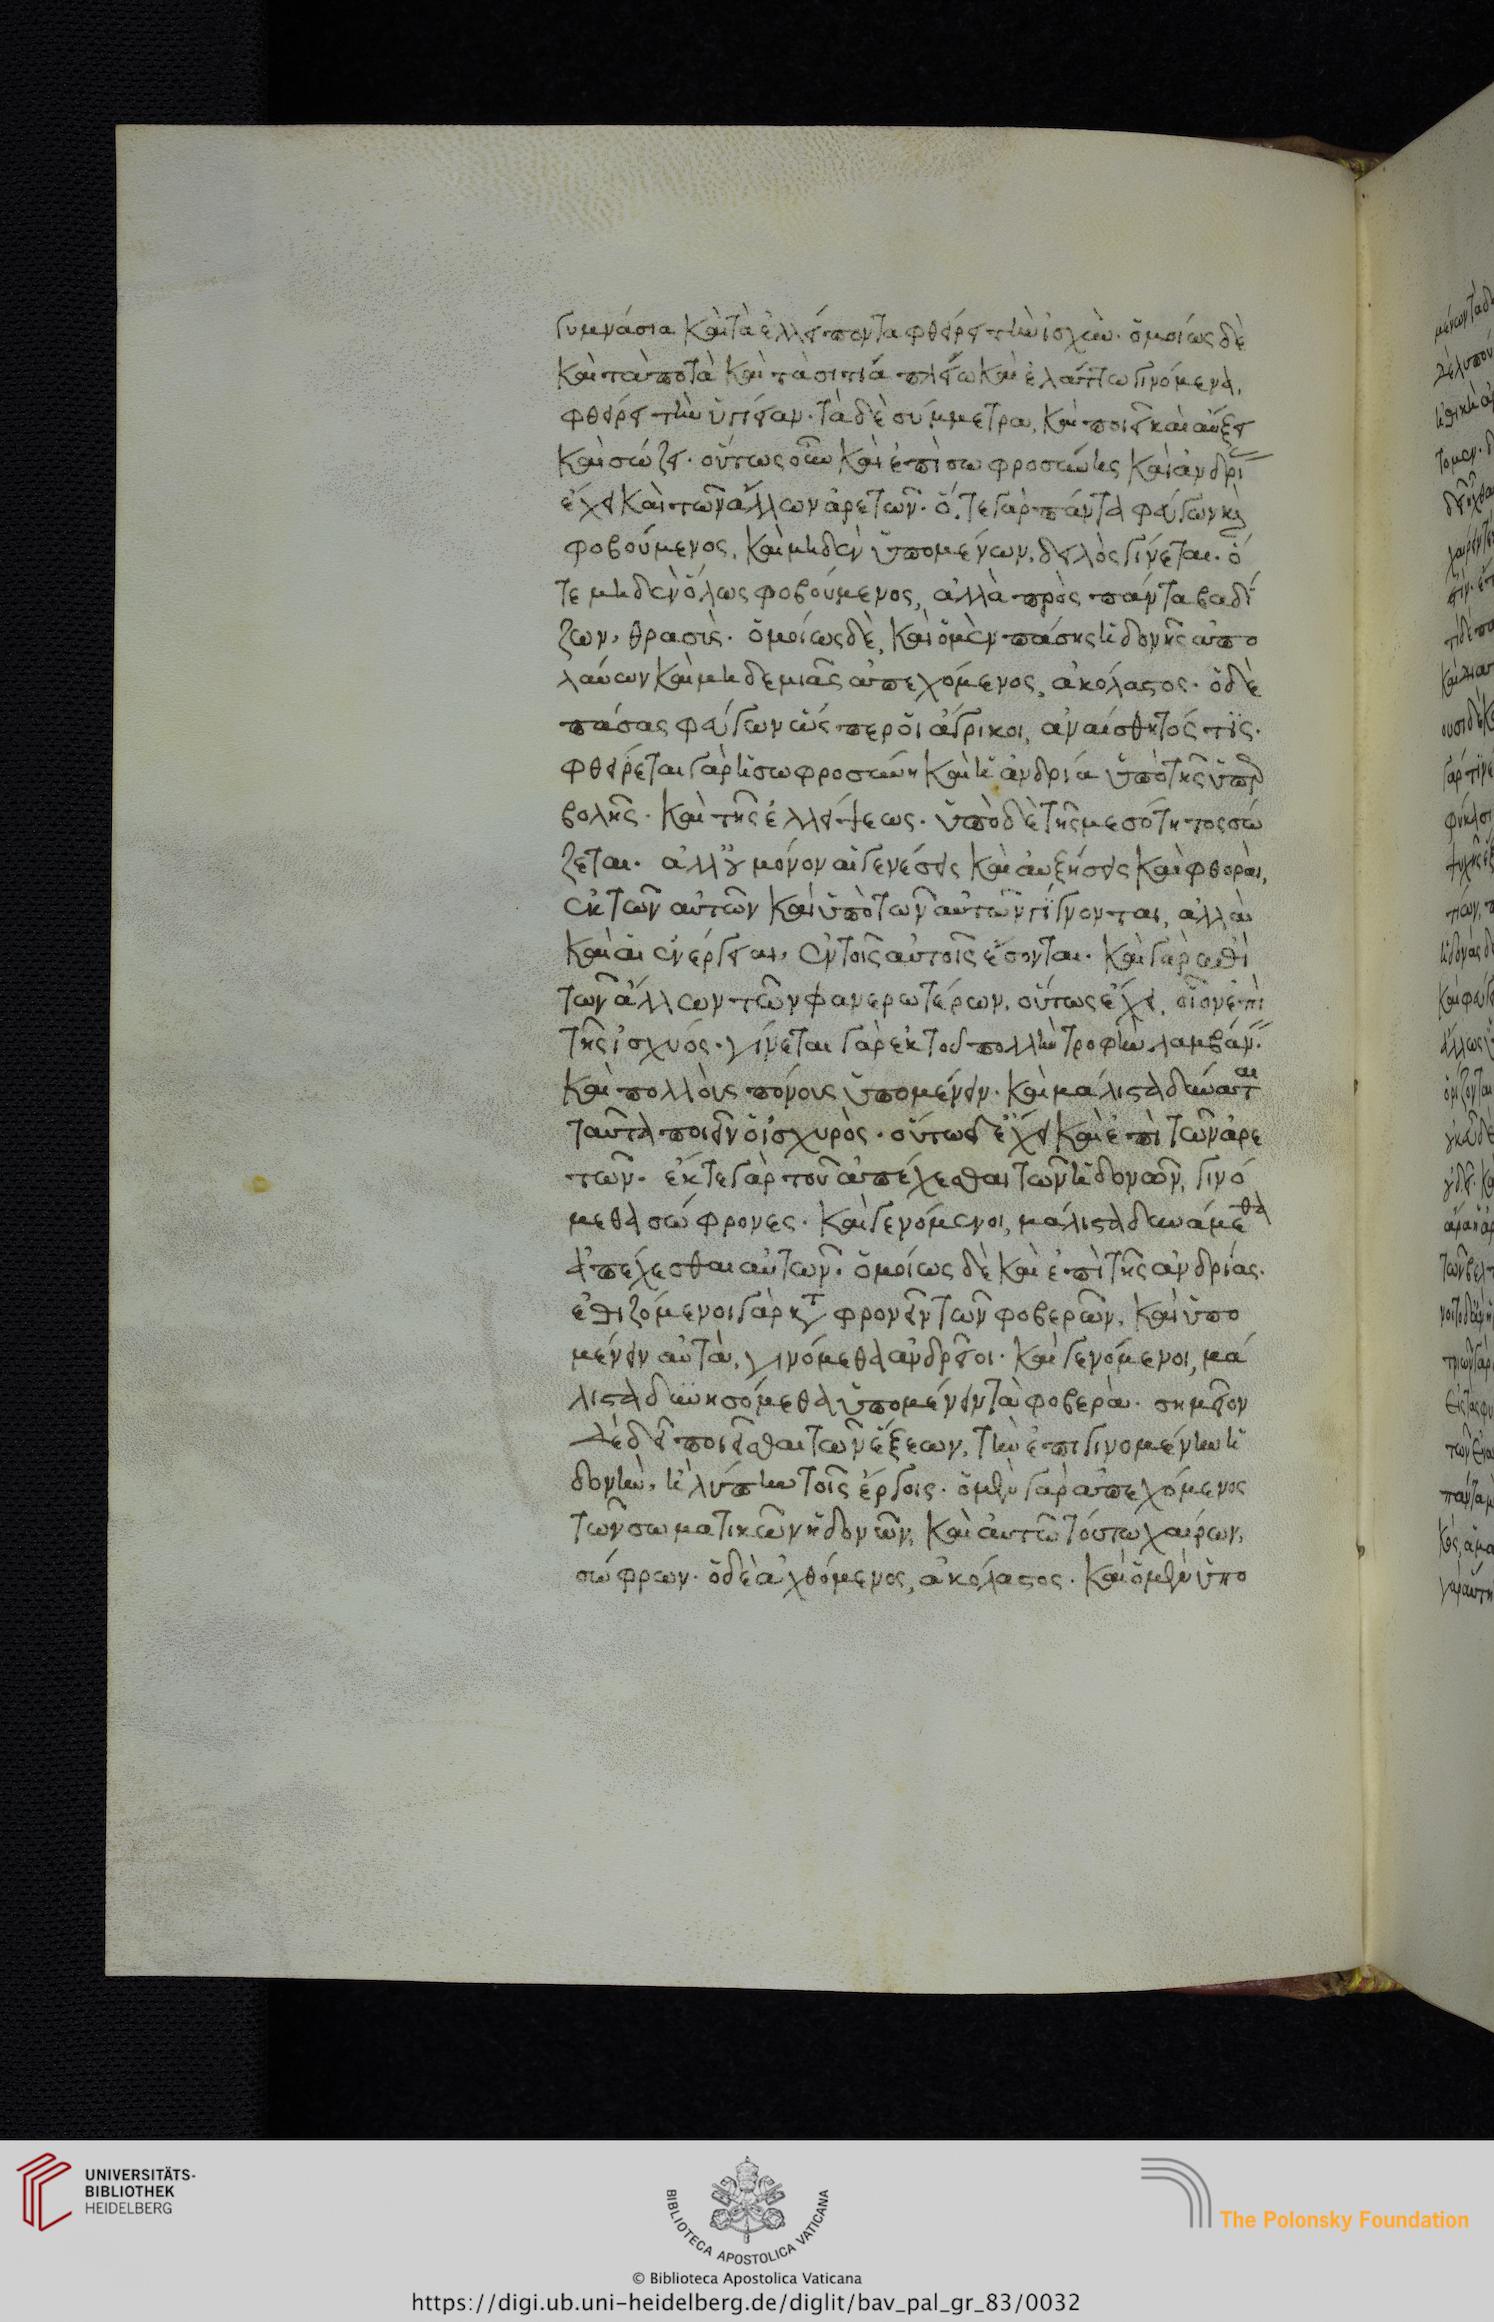 γυμνάσια καὶ τὰ ἐλλείποντα φθείρει τὴν ἰσχὺν· ὁμοίως δὲ
καὶ τὰ ποτὰ καὶ τὰ σιτία πλείω καὶ ἐλάττω γινόμενα,
φθείρει τὴν ὑγίειαν· τὰ δὲ σύμμετρα, καὶ ποιεῖ καὶ αὔξει
καὶ σώζει· οὕτως οὖν καὶ ἐπὶ σωφροσύνης καὶ ἀνδρί
ἔχει καὶ τῶν ἄλλων ἀρετῶν· ὅ, τε γὰρ πάντα φεύγων κὶ
φοβούμενος, καὶ μηδὲν ὑπομένων, δειλὸς γίνεται· ὅ
τε μηδὲν ὅλως φοβούμενος, ἀλλὰ πρὸς πάντα βαδί
ζων, θρασὺς· ὁμοίως δὲ, καὶ ὁ μὲν πάσης ἡδονῆς ἀπο
λαύων καὶ μηδεμιᾶς ἀπεχόμενος, ἀκόλαστος· ὁ δὲ
πάσας φεύγων ὥς περ οἱ ἄγρικοι, ἀναίσθητός τις·
φθείρεται γὰρ ἡ σωφροσύνη καὶ ἡ ἀνδρία ὑπὸ τῆς ὑπερ
βολῆς· καὶ τῆς ἐλλείψεως· ὑπὸ δὲ τῆς μεσότητος σώ
ζεται· ἀλλ' οὐ μόνον αἱ γενέσεις καὶ αὐξήσεις καὶ φθοραὶ,
ἐκ τῶν αὐτῶν καὶ ὑπὸ τῶν αὐτῶν γίγνονται, ἀλλὰ
καὶ αἱ ἐνέργειαι, ἐν τοῖς αὐτοῖς ἔσονται· καὶ γὰρ ἐπὶ
τῶν ἄλλων τῶν φανερωτέρων, οὕτως ἔχει, οἷον ἐπὶ
τῆς ἰσχυός· γίνεται γὰρ ἐκ τοῦ πολλὴν τροφὴν λαμβάν·
καὶ πολλοὺς πόνους ὑπομένειν· καὶ μάλιστα δύναται
ταῦτα ποιεῖν ὁ ἰσχυρὸς· οὕτω δ' ἔχει καὶ ἐπὶ τῶν ἀρε
τῶν· ἐκ τε γὰρ τοῦ ἀπέχεσθαι τῶν ἡδονῶν, γινό
μεθα σώφρονες· καὶ γενόμενοι, μάλιστα δυνάμεθα
ἀπέχεσθαι αὐτῶν· ὁμοίως δὲ καὶ ἐπὶ τῆς ἀνδρίας·
ἐθιζόμενοι γὰρ κατ φρονεῖν τῶν φοβερῶν, καὶ ὑπο
μένειν αὐτὰ, γινόμεθα ἀνδρεῖοι· καὶ γενόμενοι, μά
λιστα δυνησόμεθα ὑπομένειν τὰ φοβερὰ· σημεῖον
δὲ δεῖ ποιεῖσθαι τῶν ἕξεων, τὴν ἐπιγινομένην ἡ
δονὴν, ἢ λύπην τοῖς ἔργοις· ὁ μὲν γὰρ ἀπεχόμενος
τῶν σωματικῶν ἡδονῶν, καὶ αὐτῶ τούτω χαίρων,
σώφρων· ὁ δὲ ἀχθόμενος, ἀκόλαστος· καὶ ὁ μὲν ὑπο
UNIVERSITÄTS-
BIBLIOTHEK
HEIDELBERG
BIBLIOTECA APOSTOLICA VATICANA
The Polonsky Foundation
© Biblioteca Apostolica Vaticana
https://digi.ub.uni-heidelberg.de/diglit/bav_pal_gr_83/0032